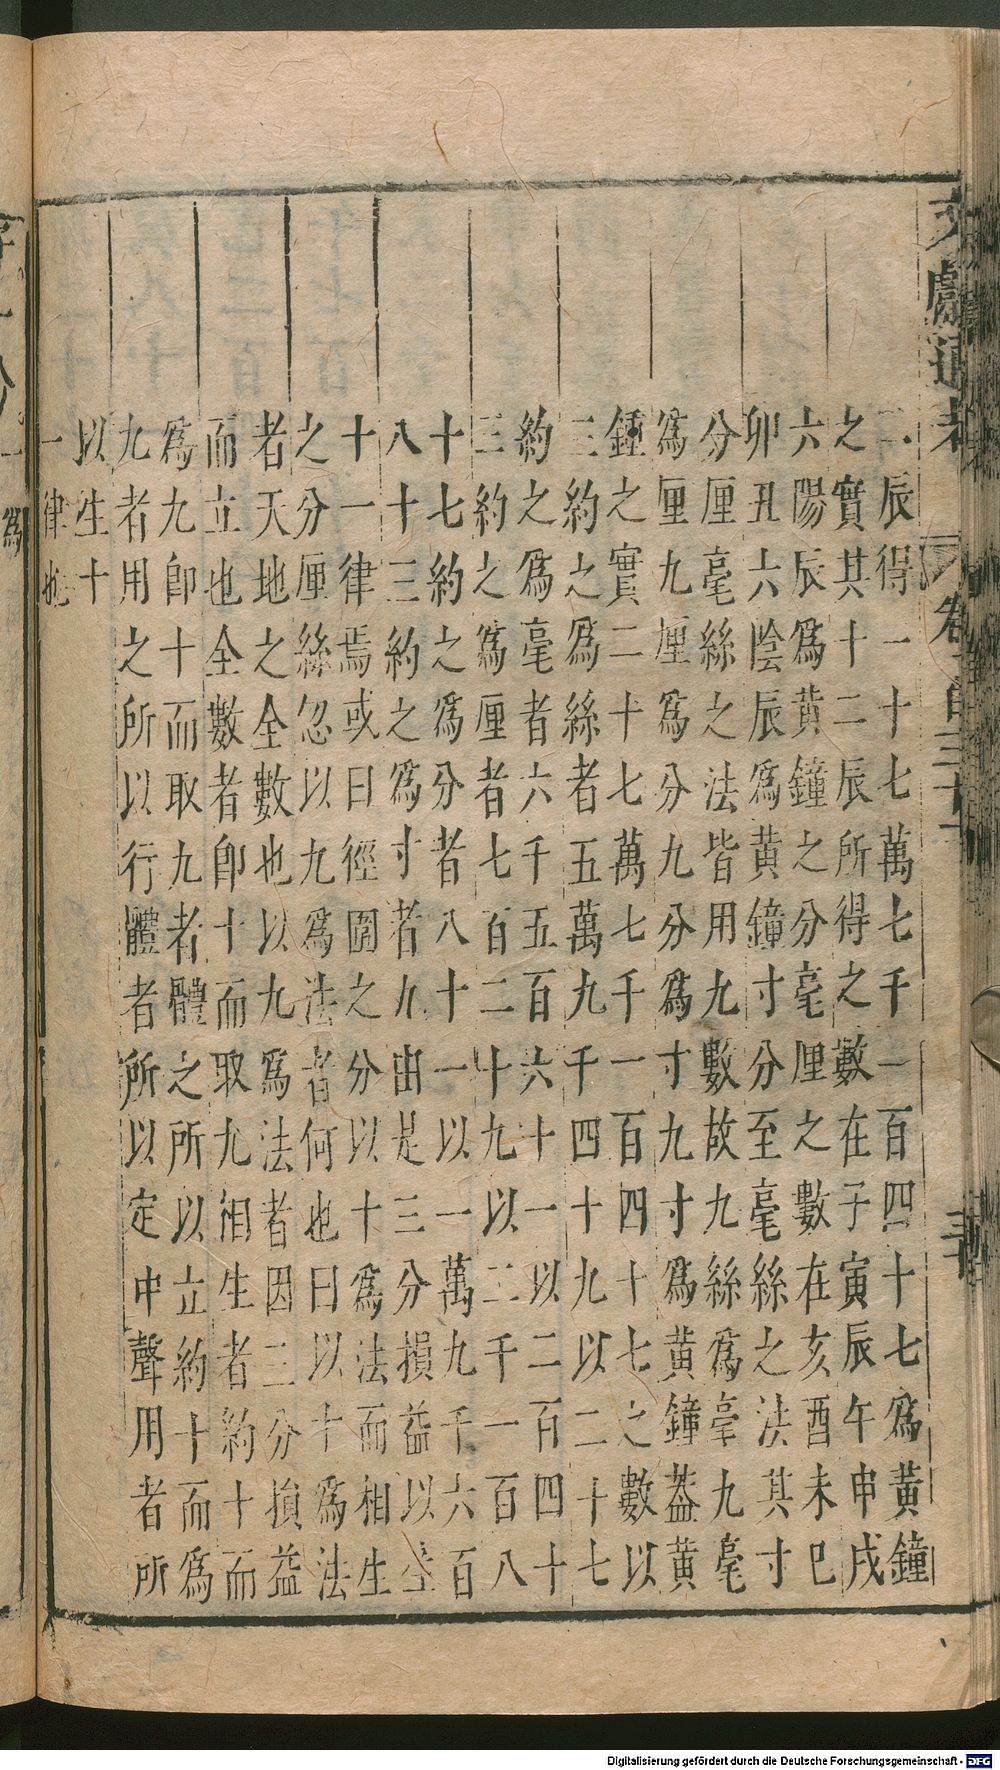 文獻通考 卷一百三十一
二辰得一十七萬七千一百四十七爲黃鐘
之實其十二辰所得之數在子寅辰午申戌
六陽辰爲黃鐘之分毫厘之數在亥酉未巳
卯丑六陰辰爲黃鐘寸分至毫絲之法其寸
分厘毫絲之法皆用九數故九絲爲毫九毫
爲厘九厘爲分九分爲寸九寸爲黃鐘葢黃
鍾之實二十七七萬七千一百四十七之數以
三約之爲絲者五萬九千四十九以二十七
約之爲毫者六千五百六十一以二百四十
三約之爲厘者七百二十九以二千一百八
十七約之爲分者八十一以一萬九千六百
八十三約之爲寸者九由是三分損益以生
十一律焉或曰徑圍之分以十爲法而相生
之分厘絲忽以九爲法者何也曰以十爲法
者天地之全數也以九爲法者因三分損益
而立也全數者卽十而取九相生者約十而
爲九卽十而取九者體之所以立約十而爲
九者用之所以行體者所以定中聲用者所
以生十
一律也
爲
Digitalisierung gefördert durch die Deutsche Forschungsgemeinschaft - DFG